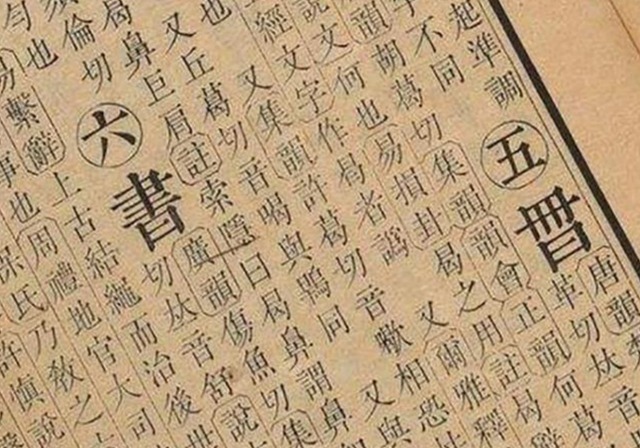 起準調 五 曷 唐韻
不同
胡葛切集韻韻會正韻何葛
革切𠀤音
韻何也易損卦曷之用註曷
說文
經文字作曷者譌又爾雅釋
又集韻許葛切音歇相恐
又丘葛切音喝與鶡同又與
也
曷鼻巨肩註索隱曰曷鼻謂鼻
倫切 六 書 廣韻傷魚切集
切𠀤音舒說
易繫辭上古結繩而治後世
事也周禮地官大司
保氏乃敎之
許慎說